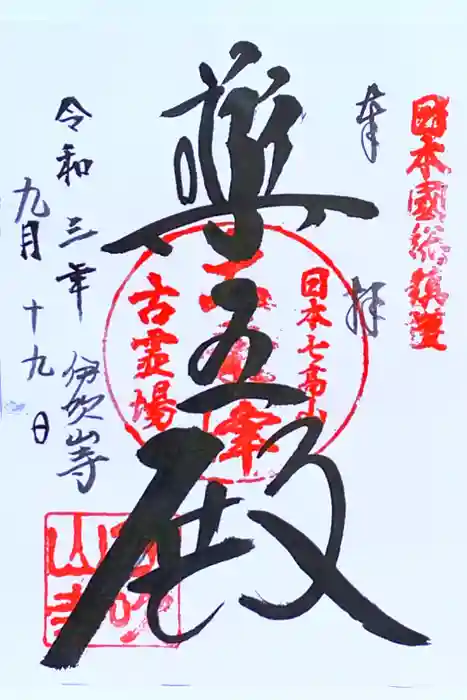 日本國総鎮護
奉拝
日本七高山
古霊場
薬王殿
令和三年
九月十九日
伊吹山寺
伊吹
山寺